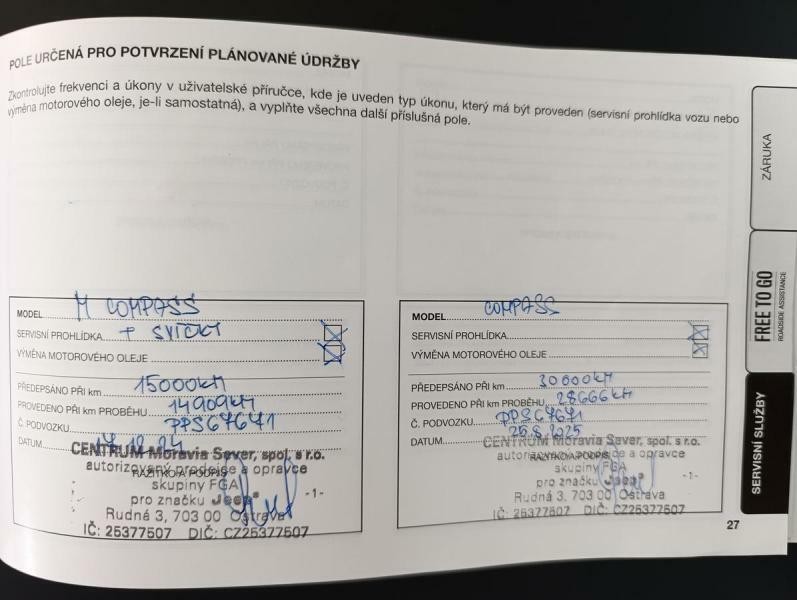 POLE URČENÁ PRO POTVRZENÍ PLÁNOVANÉ ÚDRŽBY
Zkontrolujte frekvenci a úkony v uživatelské příručce, kde je uveden typ úkonu, který má být proveden (servisní prohlídka vozu nebo
výměna motorového oleje, je-li samostatná), a vyplňte všechna další příslušná pole.
MODEL M COMPASS
SERVISNÍ PROHLÍDKA + SVÍČKY
VÝMĚNA MOTOROVÉHO OLEJE
PŘEDEPSÁNO PŘI km 15000KM
PROVEDENO PŘI km PROBĚHU 14909KM
Č. PODVOZKU PPS67671
DATUM 12.24
CENTRUM Moravia Sever, spol. s r.o.
autorizovaný prodejce a opravce
RAZÍTKO A PODPIS
skupiny FGA
pro značku Jeep® -1-
Rudná 3, 703 00 Ostrava
IČ: 25377507 DIČ: CZ25377507
MODEL COMPASS
SERVISNÍ PROHLÍDKA
VÝMĚNA MOTOROVÉHO OLEJE
PŘEDEPSÁNO PŘI km 30000KM
PROVEDENO PŘI km PROBĚHU 28666KM
Č. PODVOZKU PPS67671
DATUM 25.8.2025
CENTRUM Moravia Sever, spol. s r.o.
autorizovaný prodejce a opravce
RAZÍTKO A PODPIS
skupiny FGA
pro značku Jeep® -1-
Rudná 3, 703 00 Ostrava
IČ: 25377507 DIČ: CZ25377507
27
ZÁRUKA
FREE TO GO
ROADSIDE ASSISTANCE
SERVISNÍ SLUŽBY